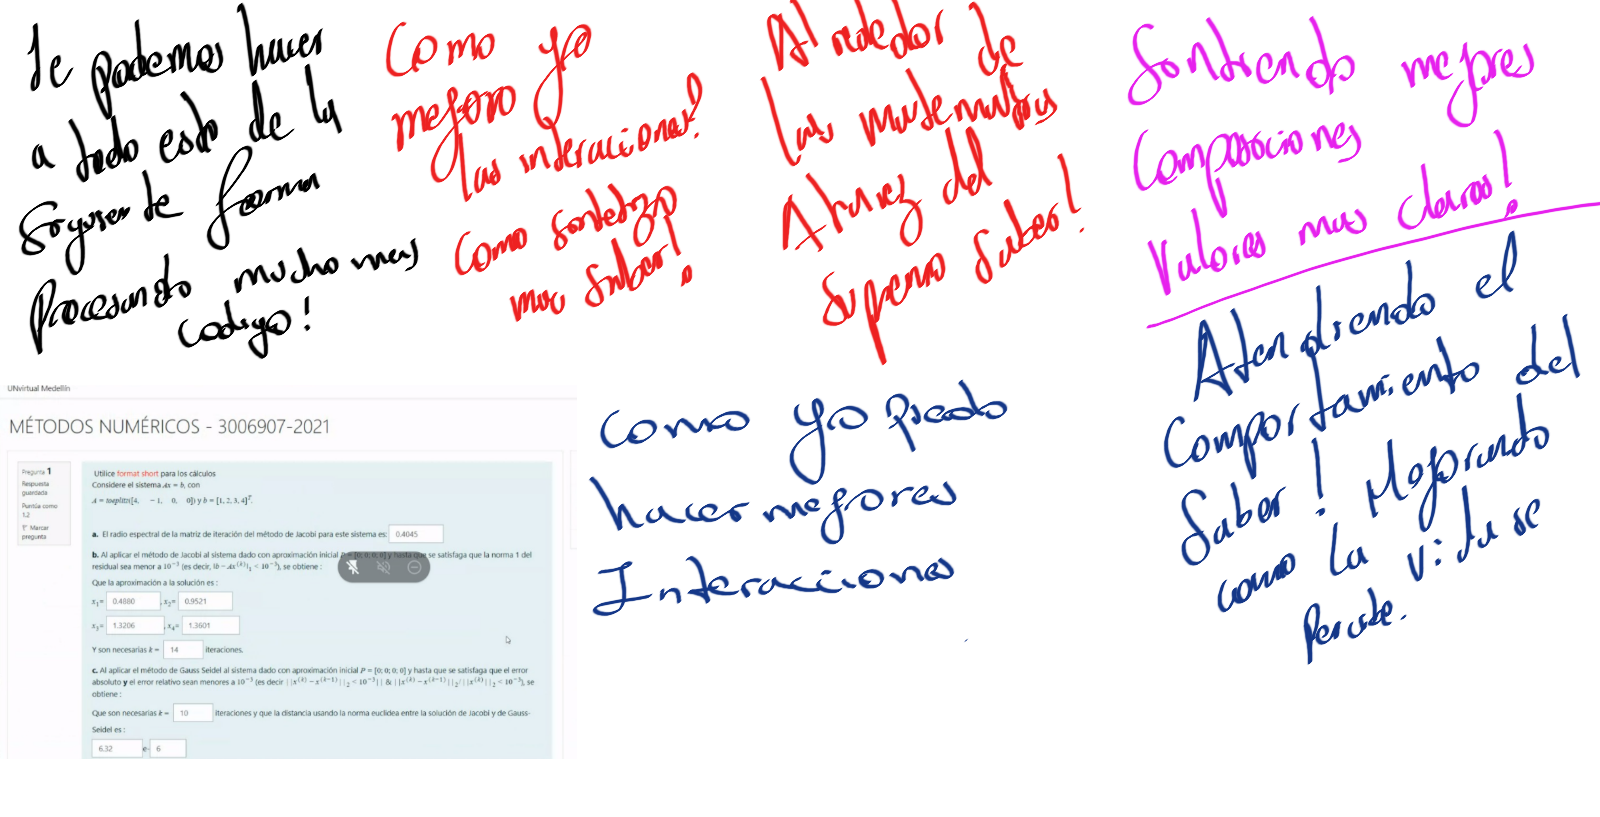 Le podemos hacer
a todo esto de la
siguiente forma
Procesando mucho mas
codigo!
Como yo
mejoro
las interaciones?
Como sintetizo
mas saber!
Alrededor de
las matematicas
Atravez del
supremo saber!
Sintiendo mejores
Composiciones
Valores mas claros!
Atendiendo el
Comportamiento del
Saber! Mejorando
como la vida se
Percibe.
Como yo puedo
hacer mejores
Interacciones
UNvirtual Medellín
MÉTODOS NUMÉRICOS - 3006907-2021
Pregunta 1
Respuesta
guardada
Puntúa como
1.2
Marcar
pregunta
Utilice format short para los cálculos
Considere el sistema Ax = b, con
A = toeplitz([4, −1, 0, 0]) y b = [1, 2, 3, 4]ᵀ.
a. El radio espectral de la matriz de iteración del método de Jacobi para este sistema es: 0.4045
b. Al aplicar el método de Jacobi al sistema dado con aproximación inicial P = [0; 0; 0; 0] y hasta que se satisfaga que la norma 1 del
residual sea menor a 10⁻³ (es decir, ||b − Ax⁽ᵏ⁾||₁ < 10⁻³), se obtiene :
Que la aproximación a la solución es :
x₁= 0.4880 , x₂= 0.9521
x₃= 1.3206 , x₄= 1.3601
Y son necesarias k = 14 iteraciones.
c. Al aplicar el método de Gauss Seidel al sistema dado con aproximación inicial P = [0; 0; 0; 0] y hasta que se satisfaga que el error
absoluto y el error relativo sean menores a 10⁻³ (es decir ||x⁽ᵏ⁾ − x⁽ᵏ⁻¹⁾||₂ < 10⁻³ || & ||x⁽ᵏ⁾ − x⁽ᵏ⁻¹⁾||₂/||x⁽ᵏ⁾||₂ < 10⁻³), se
obtiene :
Que son necesarias k = 10 iteraciones y que la distancia usando la norma euclidea entre la solución de Jacobi y de Gauss-
Seidel es :
6.32 e- 6